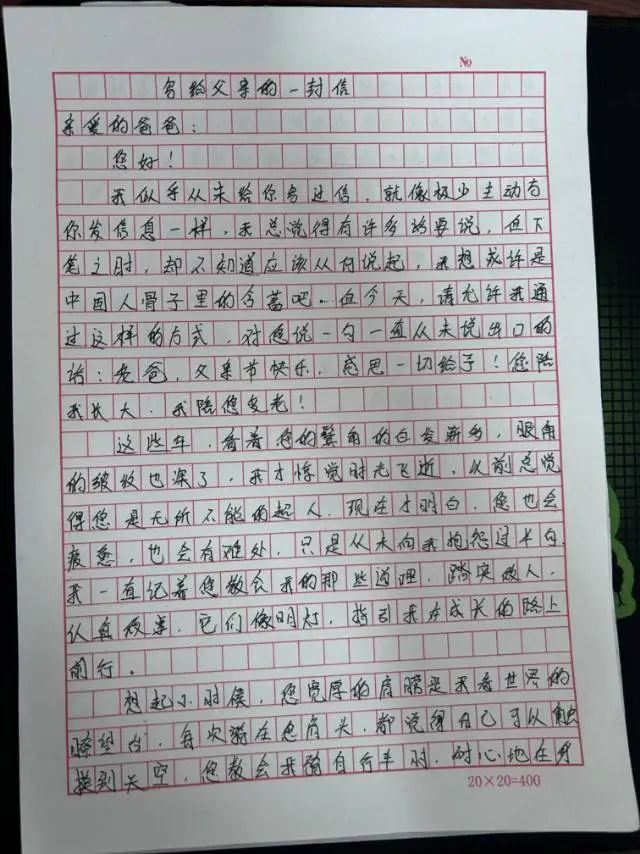 No
写给父亲的一封信
亲爱的爸爸：
您好！
我似乎从未给你写过信，就像极少主动与
你发信息一样，我总觉得有许多的要说，但下
笔之时，却不知道应该从何说起，我想或许是
中国人骨子里的含蓄吧…但今天，请允许我通
过这样的方式，对您说一句一直从未说出口的
话：老爸，父亲节快乐，感恩一切给予！您陪
我长大，我陪您变老！
这些年，看着您的鬓角的白发渐多，眼角
的皱纹也深了，我才惊觉时光飞逝，从前总觉
得您是无所不能的超人，现在才明白，您也会
疲惫，也会有难处，只是从未向我抱怨过半句，
我一直记着您教会我的那些道理，踏实做人，
认真做事，它们像明灯，指引我在成长的路上
前行。
想起小时候，您宽厚的肩膀是我看世界的
瞭望台，每次骑在您肩头，都觉得自己可以触
摸到天空，您教会我骑自行车时，耐心地在身
20×20=400